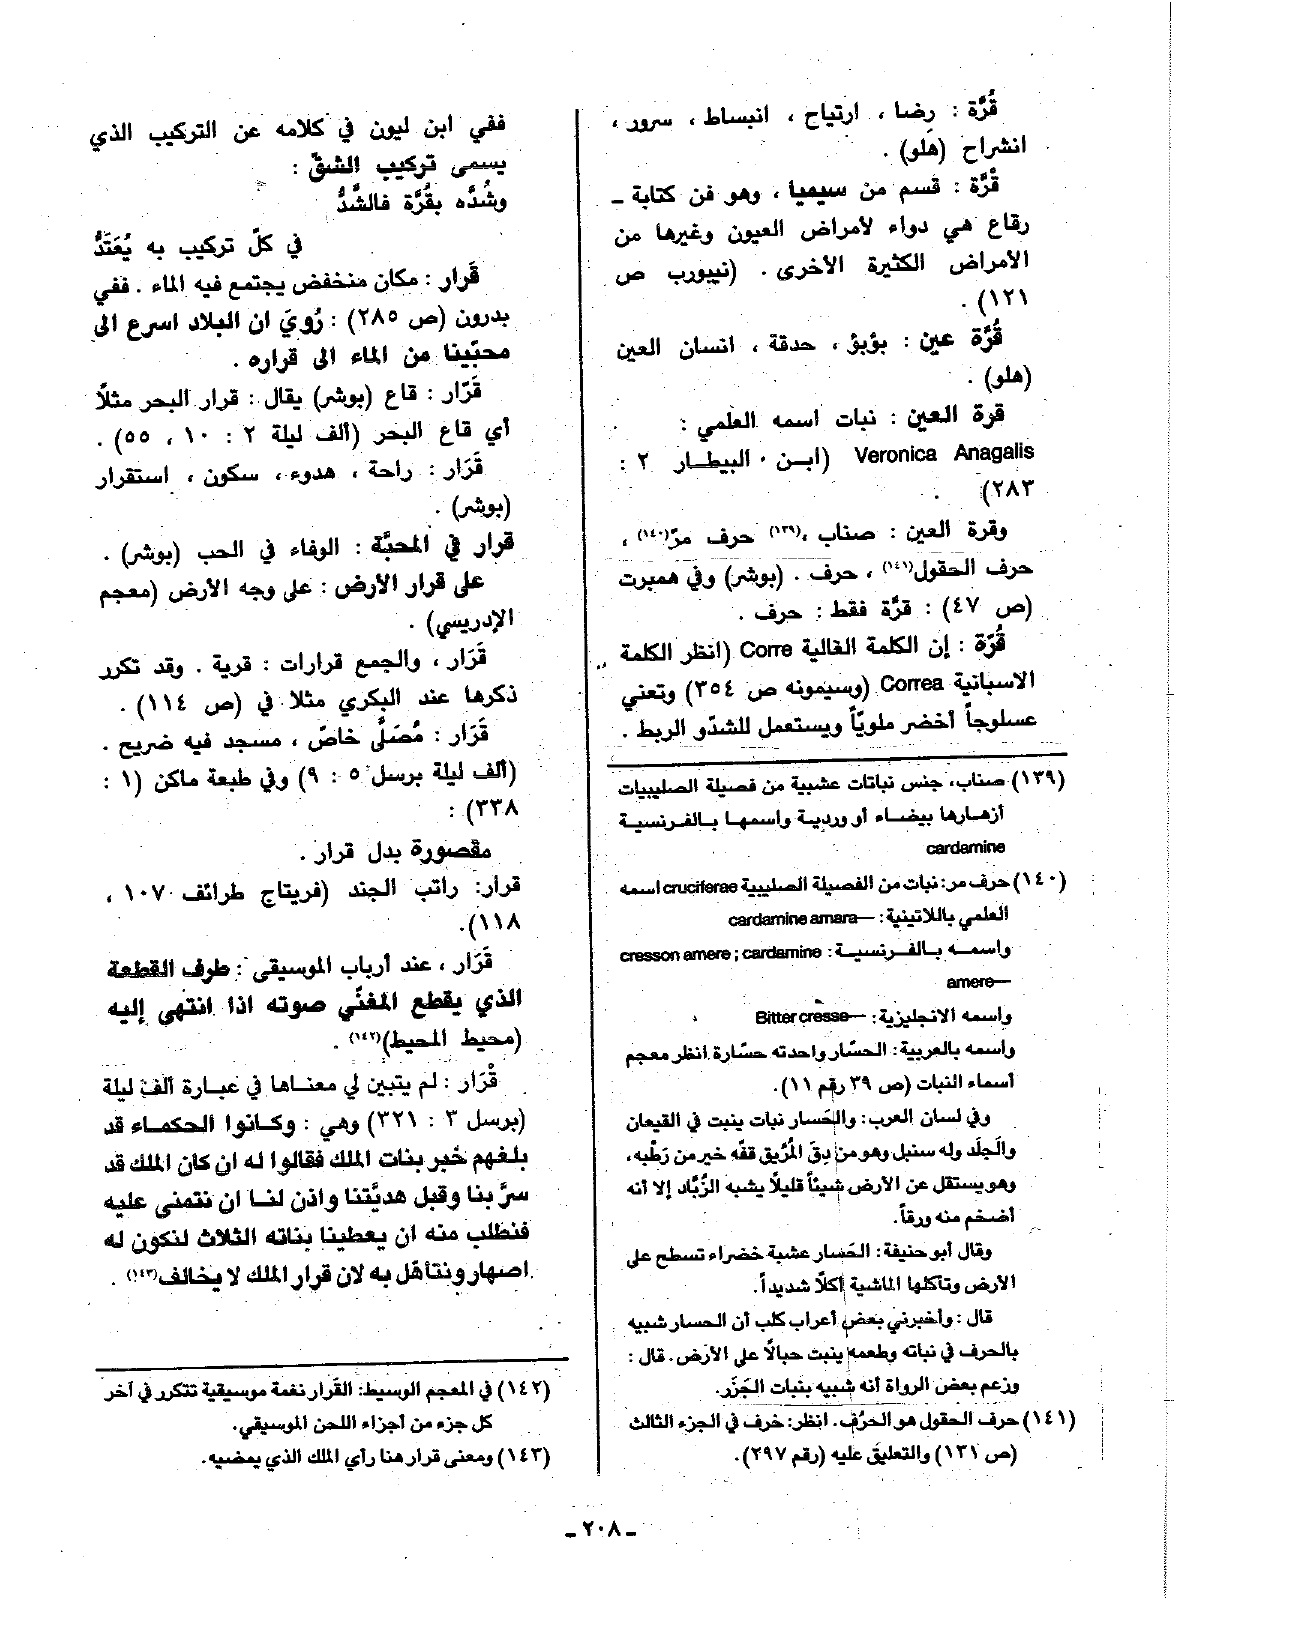 قُرَّة : رِضا ، ارتياح ، انبساط ، سرور ،
انشراح (هلو) .
قُرَّة : قسم من سيميا ، وهو فن كتابة ـ
رقاع هي دواء لأمراض العيون وغيرها من
الأمراض الكثيرة الأخرى . (نييورب ص
١٢١) .
قُرَّة عين : بؤبؤ ، حدقة ، انسان العين
(هلو) .
قرة العين : نبات اسمه العلمي :
Veronica Anagalis (ابن البيطار ٢ :
٢٨٣) .
وقرة العين : صناب ،(١٣٩) حرف مرّ(١٤٠) ،
حرف الحقول(١٤١) ، حرف . (بوشر) وفي همبرت
(ص ٤٧) : قرَّة فقط : حرف .
قُرّة : إن الكلمة الغالية Corre (انظر الكلمة
الاسبانية Correa (وسيمونه ص ٣٥٤) وتعني
عسلوجاً أخضر ملويّاً ويستعمل للشدّو الربط .
(١٣٩) صناب، جنس نباتات عشبية من فصيلة الصليبيات
أزهارها بيضاء أو وردية واسمها بالفرنسية
cardamine
(١٤٠) حرف مر: نبات من الفصيلة الصليبية cruciferae اسمه
العلمي باللاتينية: — cardamine amara
واسمه بالفرنسية: cresson amere ; cardamine
amere—
واسمه الانجليزية: — Bitter cresse
واسمه بالعربية: الحسّار واحدته حسّارة انظر معجم
أسماء النبات (ص ٣٩ رقم ١١).
وفي لسان العرب: والحَسار نبات ينبت في القيعان
والجَلَد وله سنبل وهو من دِقّ المُرّيق قفّه خير من رَطْبه،
وهو يستقل عن الأرض شيئاً قليلاً يشبه الزُّبّاد إلا أنه
أضخم منه ورقاً.
وقال أبو حنيفة: الحَسار عشبة خضراء تسطح على
الأرض وتأكلها الماشية أكلاً شديداً.
قال : وأخبرني بعض أعراب كلب أن الحسار شبيه
بالحرف في نباته وطعمه ينبت حبالاً على الأرض. قال :
وزعم بعض الرواة أنه شبيه بنبات الجَزَر.
(١٤١) حرف الحقول هو الحرُف. انظر: خرف في الجزء الثالث
(ص ١٣١) والتعليق عليه (رقم ٢٩٧).
ففي ابن ليون في كلامه عن التركيب الذي
يسمى تركيب الشقّ :
وشُدَّه بقُرَّة فالشَّدُّ
في كلّ تركيب به يُعْتَدُّ
قَرار : مكان منخفض يجتمع فيه الماء . ففي
بدرون (ص ٢٨٥) : رُويَ ان البلاد اسرع الى
محبّينا من الماء الى قراره .
قَرّار : قاع (بوشر) يقال : قرار البحر مثلاً
أي قاع البحر (ألف ليلة ٢ : ١٠ ، ٥٥) .
قَرَار : راحة ، هدوء ، سكون ، استقرار
(بوشر) .
قرار في المحبَّة : الوفاء في الحب (بوشر) .
على قرار الأرض : على وجه الأرض (معجم
الإدريسي) .
قَرَار ، والجمع قرارات : قرية . وقد تكرر
ذكرها عند البكري مثلا في (ص ١١٤) .
قَرَار : مُصَلَّى خاصّ ، مسجد فيه ضريح .
(ألف ليلة برسل ٥ : ٩) وفي طبعة ماكن (١ :
٣٣٨) :
مقصورة بدل قرار .
قرار: راتب الجند (فريتاج طرائف ١٠٧ ،
١١٨).
قَرَار ، عند أرباب الموسيقى : طرف القطعة
الذي يقطع المغنّي صوته اذا انتهى إليه
(محيط المحيط)(١٤٢) .
قْرَار : لم يتبين لي معناها في عبارة ألف ليلة
(برسل ٣ : ٣٢١) وهي : وكانوا الحكماء قد
بلغهم خبر بنات الملك فقالوا له ان كان الملك قد
سرَّ بنا وقبل هديَّتنا واذن لنا ان نتمنى عليه
فنطلب منه ان يعطينا بناته الثلاث لنكون له
اصهار ونتأهّل به لان قرار الملك لا يخالف(١٤٣) .
(١٤٢) في المعجم الوسيط: القَرار نغمة موسيقية تتكرر في آخر
كل جزء من أجزاء اللحن الموسيقي.
(١٤٣) ومعنى قرار هنا رأي الملك الذي يمضيه.
ـ ٢٠٨ ـ